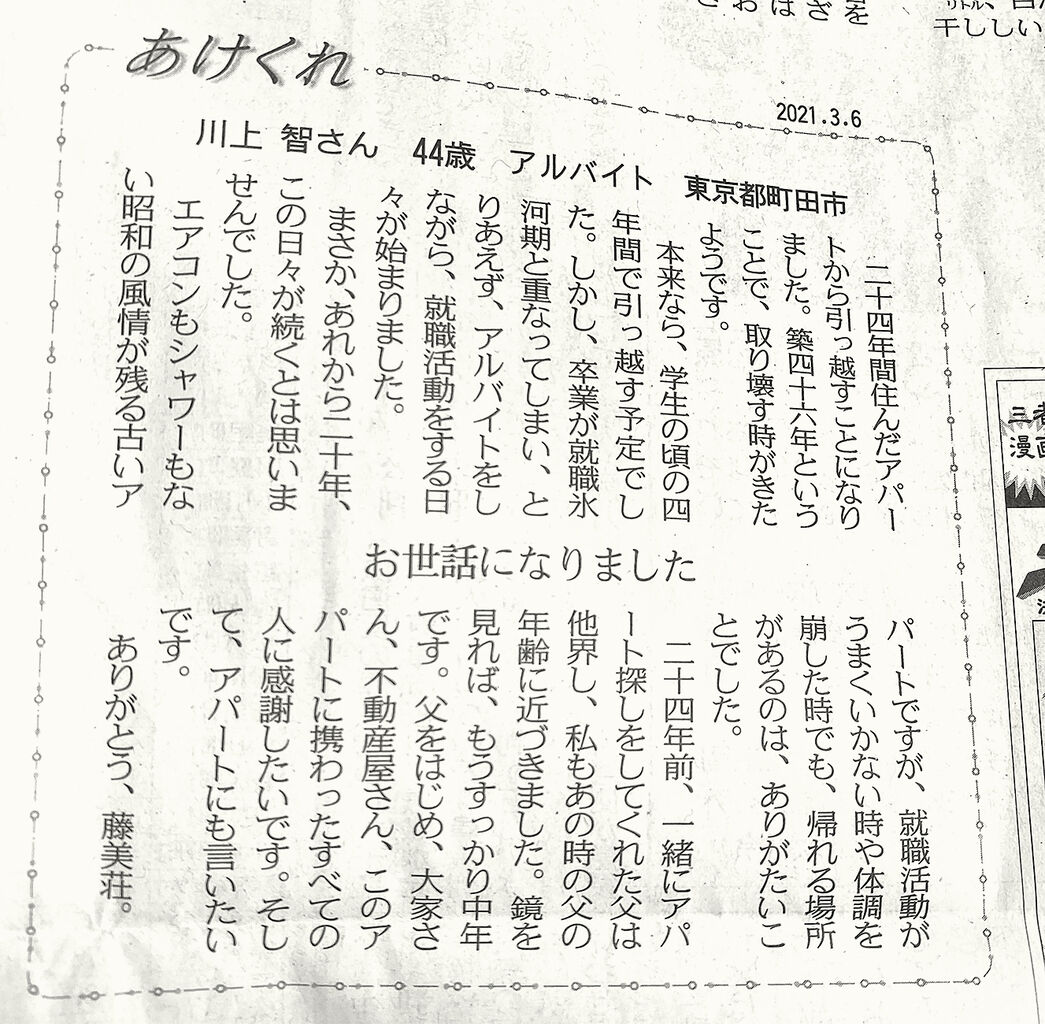 あけくれ
2021.3.6
川上 智さん 44歳 アルバイト 東京都町田市
お世話になりました
二十四年間住んだアパー
トから引っ越すことになり
ました。築四十六年という
ことで、取り壊す時がきた
ようです。
本来なら、学生の頃の四
年間で引っ越す予定でし
た。しかし、卒業が就職氷
河期と重なってしまい、と
りあえず、アルバイトをし
ながら、就職活動をする日
々が始まりました。
まさか、あれから二十年、
この日々が続くとは思いま
せんでした。
エアコンもシャワーもな
い昭和の風情が残る古いア
パートですが、就職活動が
うまくいかない時や体調を
崩した時でも、帰れる場所
があるのは、ありがたいこ
とでした。
二十四年前、一緒にアパ
ート探しをしてくれた父は
他界し、私もあの時の父の
年齢に近づきました。鏡を
見れば、もうすっかり中年
です。父をはじめ、大家さ
ん、不動産屋さん、このア
パートに携わったすべての
人に感謝したいです。そし
て、アパートにも言いたい
です。
ありがとう、藤美荘。
干ししい
漫画